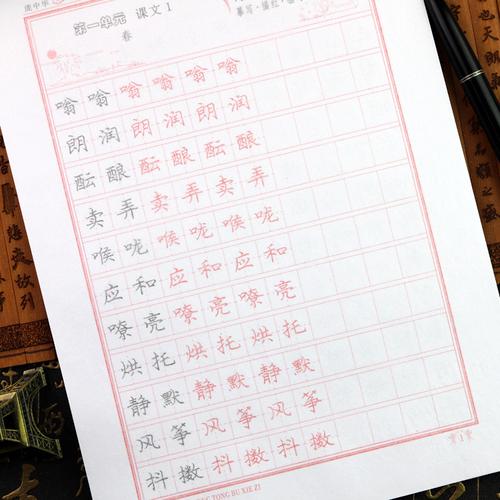 庞中华
摹写·描红·
第一单元 课文 1
春
嗡 嗡 嗡 嗡 嗡 嗡
朗 润 朗 润 朗 润
酝 酿 酝 酿 酝 酿
卖 弄 卖 弄 卖 弄
喉 咙 喉 咙 喉 咙
应 和 应 和 应 和
嘹 亮 嘹 亮 嘹 亮
烘 托 烘 托 烘 托
静 默 静 默 静 默
风 筝 风 筝 风 筝
抖 擞 抖 擞 抖 擞
TONG BU XIE ZI
第1页